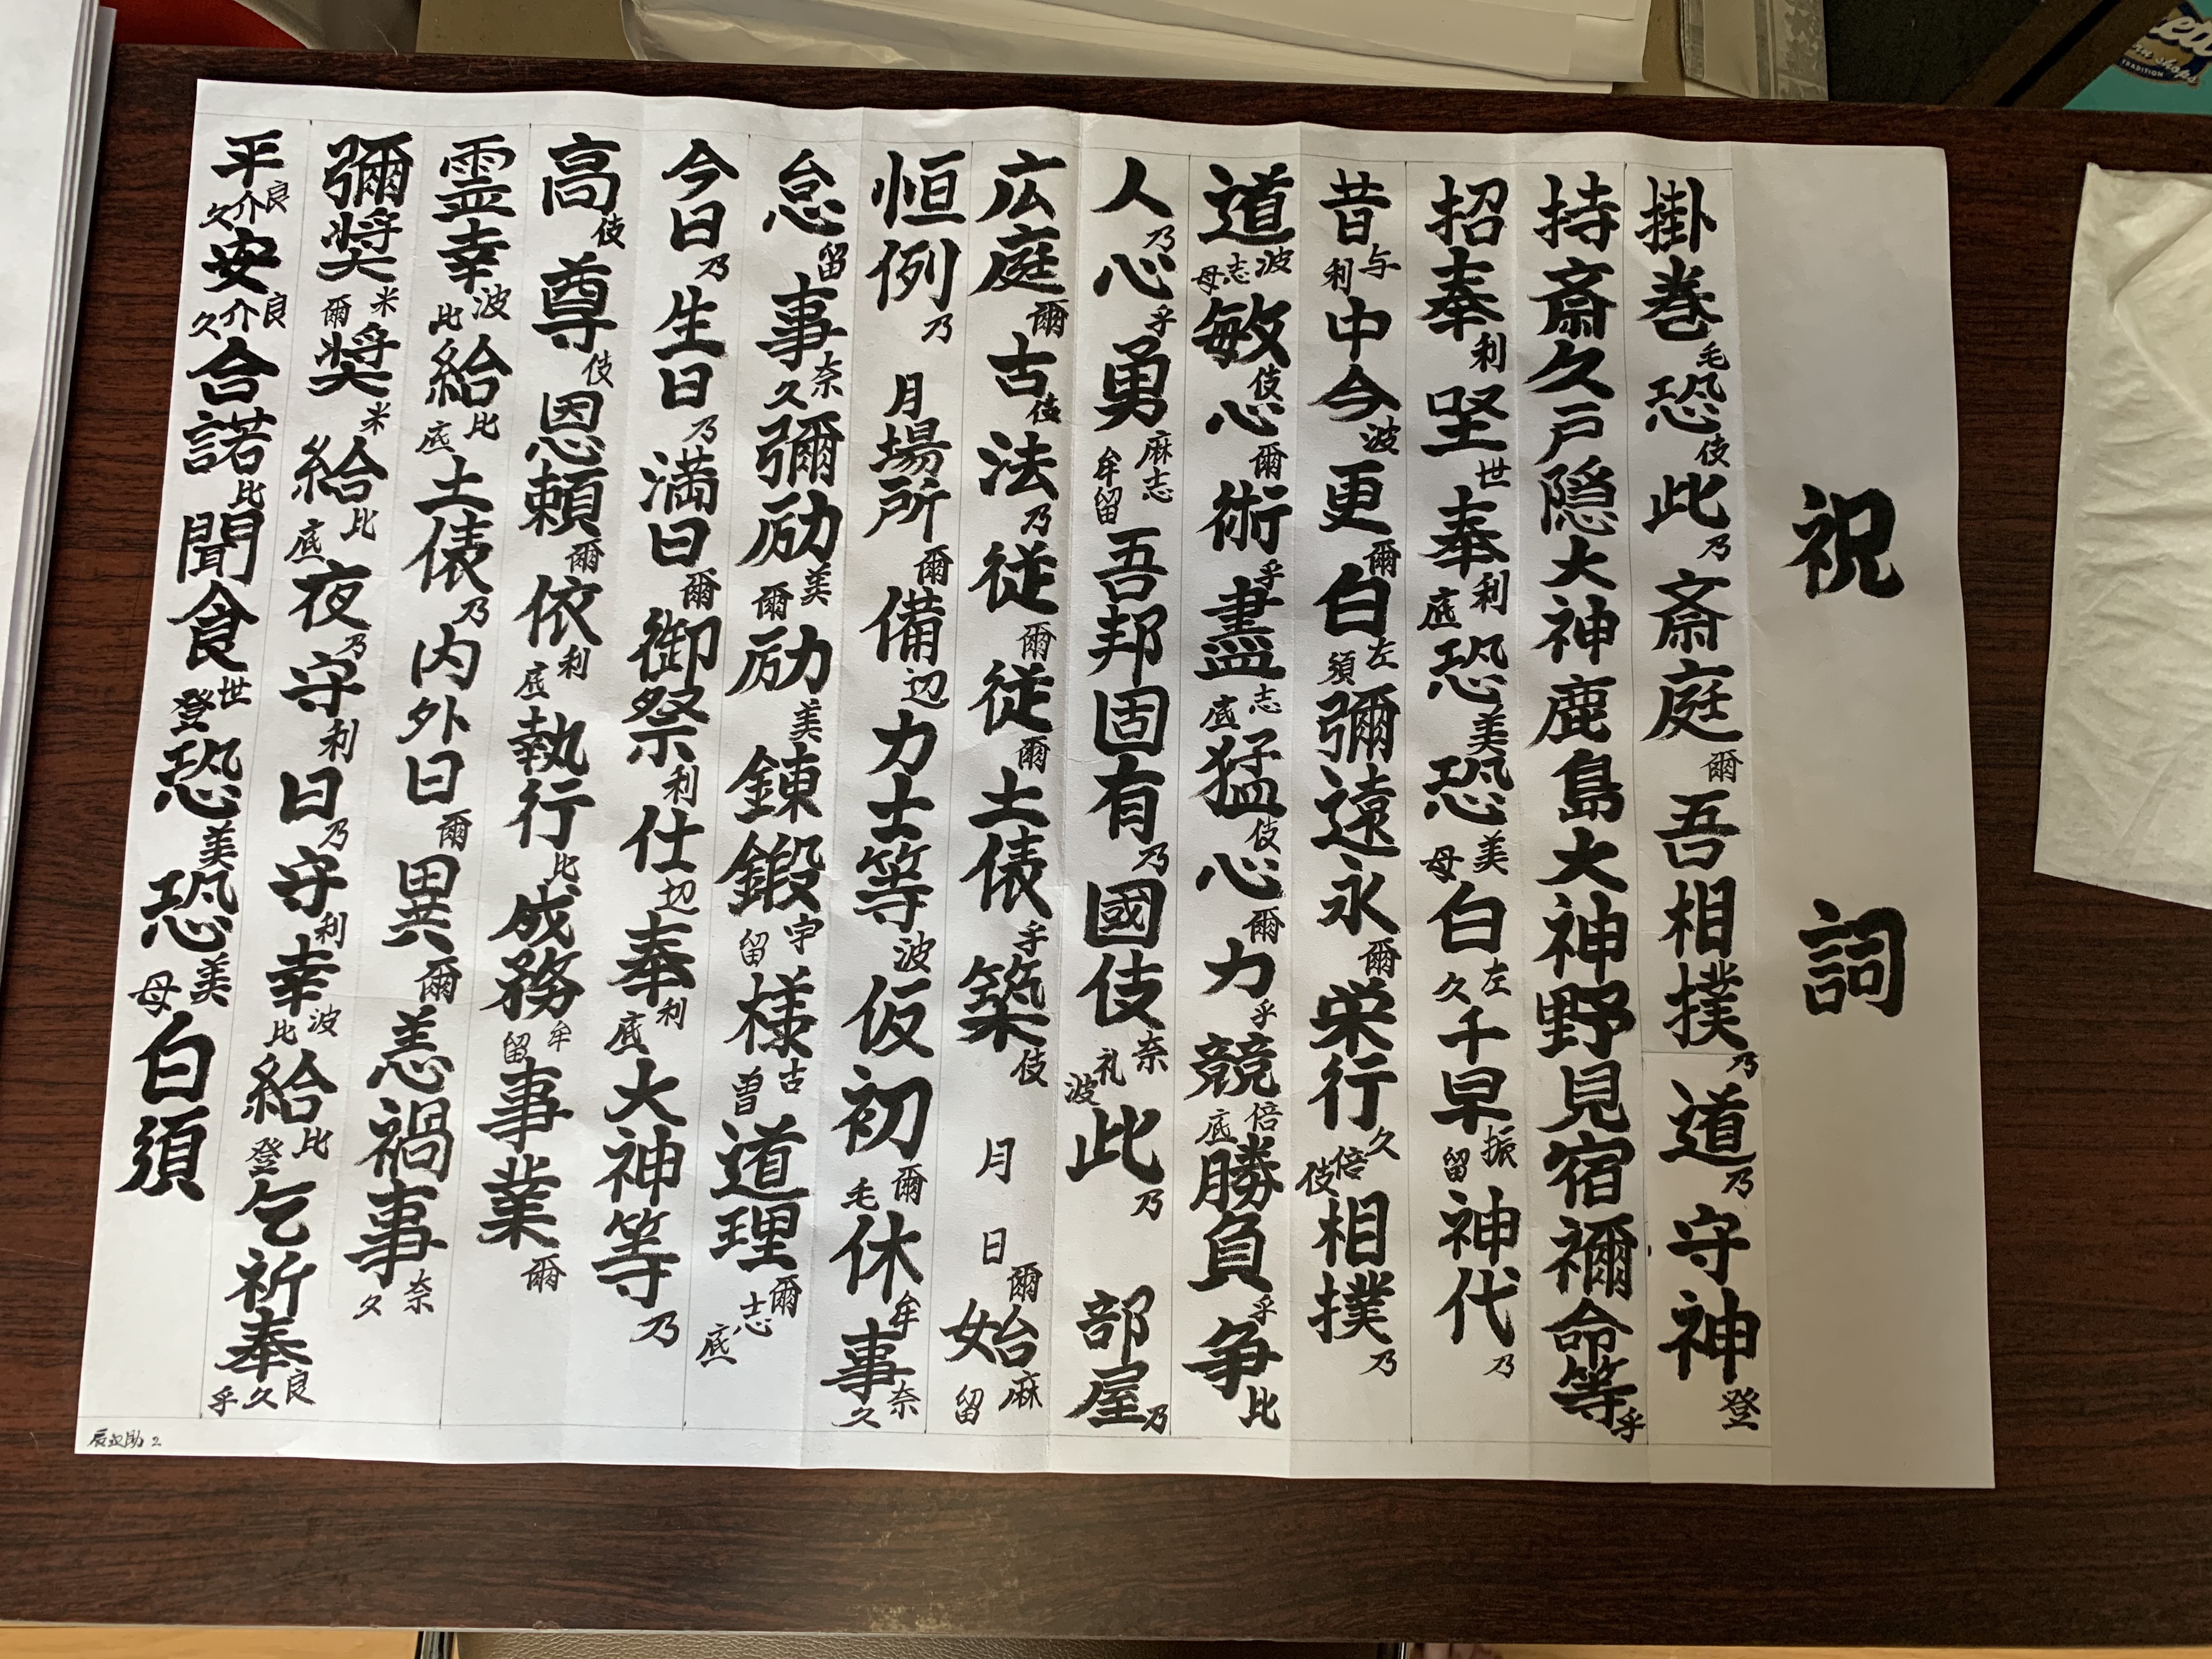 祝詞
掛巻毛恐伎此乃斎庭爾吾相撲乃道乃守神登
持斎久戸隠大神鹿島大神野見宿禰命等乎
招奉利坐世奉利底恐美恐美母白左久千早振留神代乃
昔与利中今波更爾白左須彌遠永爾栄行久倍伎相撲乃
道波志母敏伎心爾術乎盡志底猛伎心爾力乎競倍底勝負乎争比
人乃心乎勇麻志牟留吾邦固有乃國伎奈礼波此乃 部屋乃
広庭爾古伎法乃従爾従爾土俵乎築伎 月 日爾始麻留
恒例乃 月場所爾備辺力士等波仮初爾毛休牟事奈久
怠留事奈久彌励美爾励美錬鍛宇留様古曽道理爾志底
今日乃生日乃満日爾御祭利仕辺奉利底大神等乃
高伎尊伎恩頼爾依利底執行比成務牟留事業爾
霊幸波比給比底土俵乃内外日爾異爾恙禍事奈久
彌奨米爾奨米給比底夜乃守利日乃守利幸波比給比登乞祈奉良久乎
平良介久安良介久合諾比聞食世登恐美恐美母白須